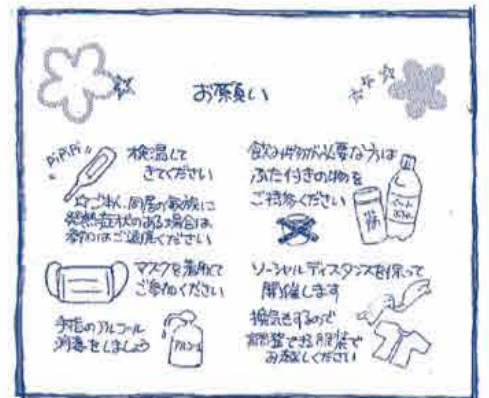 お願い
PiPiPi
検温して
きてください
ご本人、同居の家族に
発熱症状のある場合は、
参加はご遠慮ください
マスクを着用して
ご参加ください
手指のアルコール
消毒をしましょう
アルコール
飲み物が必要な方は
ふた付きの物を
ご持参ください
ソーシャルディスタンスを保って
開催します
換気をするので
調整できる服装で
お越しください